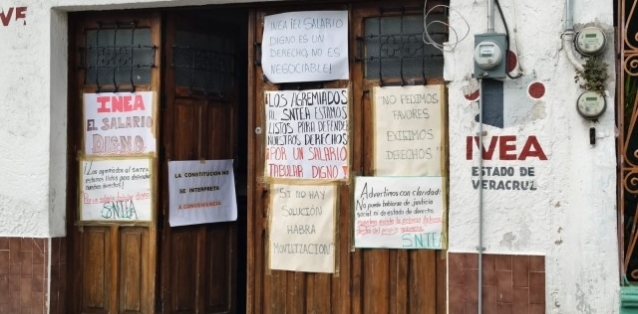 VE
INEA
EL SALARIO
DIGNO
SNTEA
LA CONSTITUCIÓN NO
SE INTERPRETA
A CONVENIENCIA
EL SALARIO
DIGNO ES UN
DERECHO, NO ES
NEGOCIABLE!
¡LOS AGREMIADOS
AL SNTEA ESTAMOS
LISTOS PARA DEFENDER
NUESTROS DERECHOS
¡POR UN SALARIO
TABULAR DIGNO!
"SI NO HAY
SOLUCIÓN
HABRA
MOVILIZACION"
"NO PEDIMOS
FAVORES
EXIGIMOS
DERECHOS"
Advertimos con claridad:
No puede hablarse de justicia
social ni de estado de derecho
SNTEA
IVEA
ESTADO DE
VERACRUZ